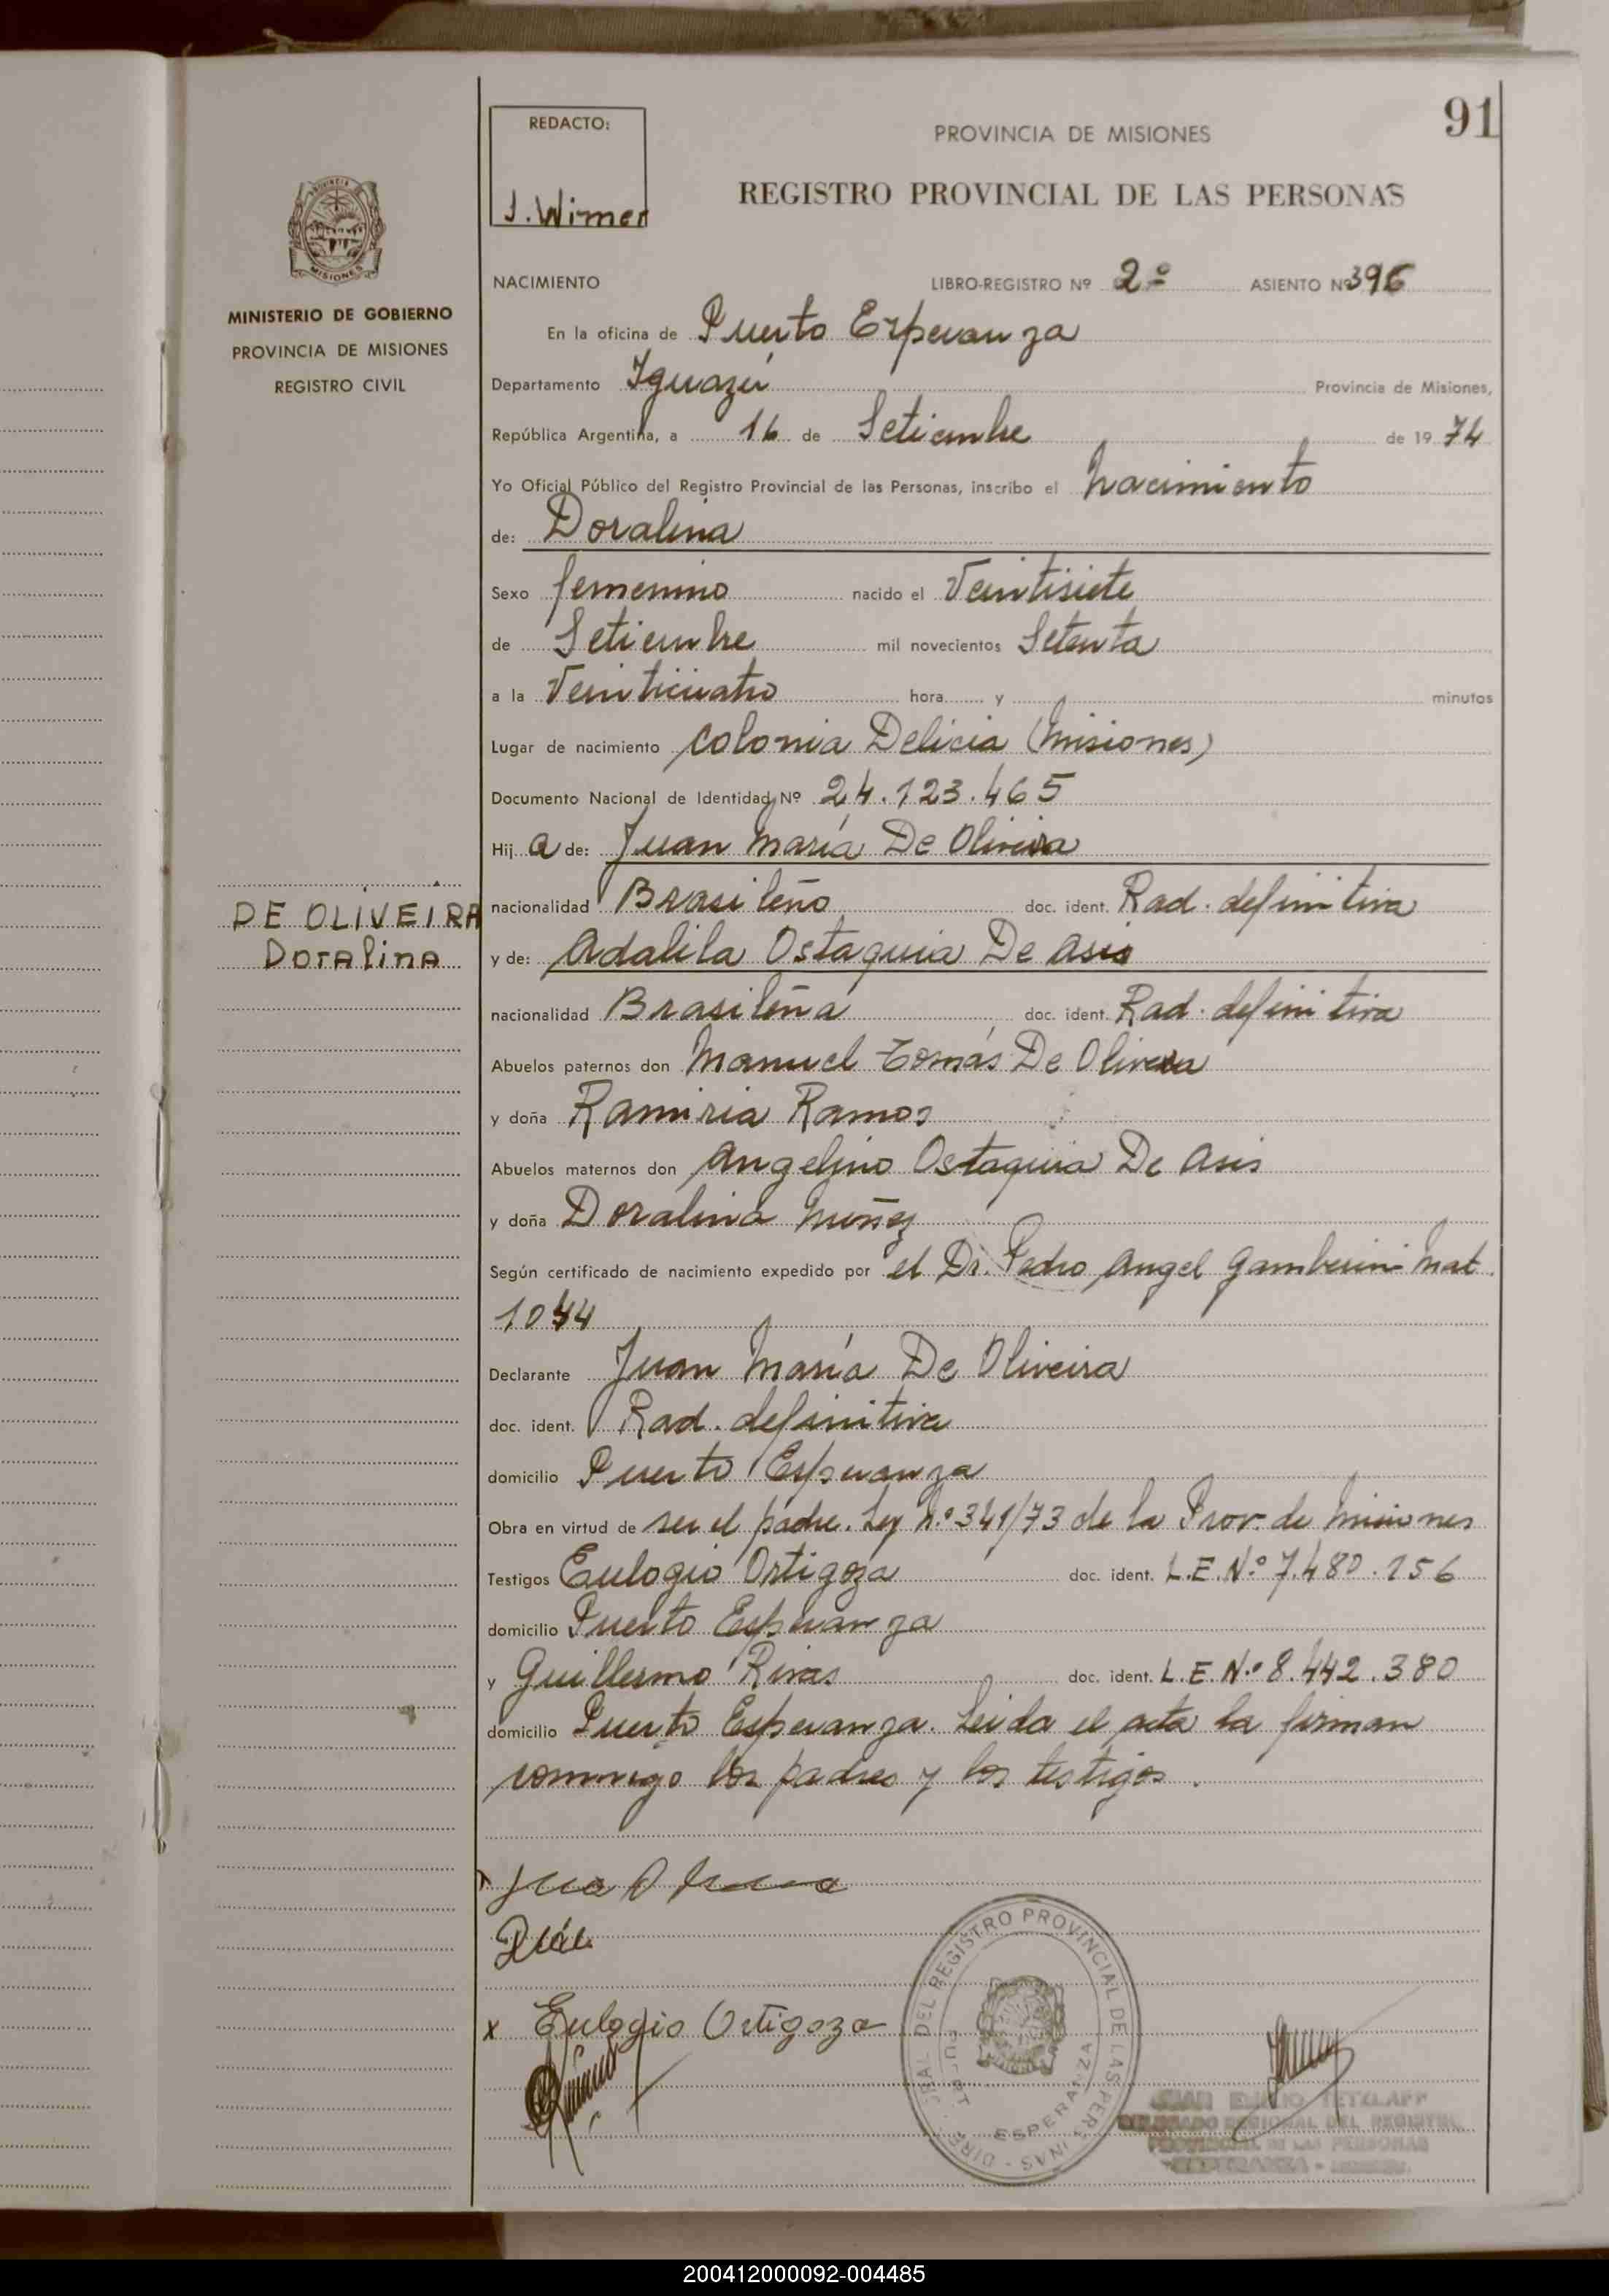 91
REDACTO:
J. Wimer
PROVINCIA DE MISIONES
REGISTRO PROVINCIAL DE LAS PERSONAS
MISIONES
MINISTERIO DE GOBIERNO
PROVINCIA DE MISIONES
REGISTRO CIVIL
NACIMIENTO LIBRO-REGISTRO Nº 2º ASIENTO Nº 396
En la oficina de Puerto Esperanza
Departamento Iguazú Provincia de Misiones,
República Argentina, a 16 de Setiembre de 19 74
Yo Oficial Público del Registro Provincial de las Personas, inscribo el nacimiento
de: Doralina
Sexo femenino nacido el Veintisiete
de Setiembre mil novecientos Setenta
a la Veinticuatro hora y minutos
Lugar de nacimiento Colonia Delicia (Misiones)
Documento Nacional de Identidad Nº 24.123.465
Hij a de: Juan María De Oliveira
DE OLIVEIRA
Doralina
nacionalidad Brasileño doc. ident. Rad. definitiva
y de: Adalila Ostaquia De Asis
nacionalidad Brasileña doc. ident. Rad. definitiva
Abuelos paternos don Manuel Tomás De Oliveira
y doña Ramiria Ramos
Abuelos maternos don Angelino Ostaquia De Asis
y doña Doralina Nuñez
Según certificado de nacimiento expedido por el Dr. Pedro Angel Gamberini Mat.
1044
Declarante Juan María De Oliveira
doc. ident. Rad. definitiva
domicilio Puerto Esperanza
Obra en virtud de ser el padre. Ley N.º 341/73 de la Prov. de Misiones
Testigos Eulogio Ortigoza doc. ident. L.E.N.º 7.480.156
domicilio Puerto Esperanza
y Guillermo Rivas doc. ident. L.E.N.º 8.442.380
domicilio Puerto Esperanza. Leida el acta la firman
conmigo los padres y los testigos.
x Eulogio Ortigoza
DEL REGISTRO PROVINCIAL DE LAS PERSONAS
ESPERANZA
DELEGADO REGIONAL DEL REGISTRO
PROVINCIAL DE LAS PERSONAS
ESPERANZA - MISIONES
200412000092-004485